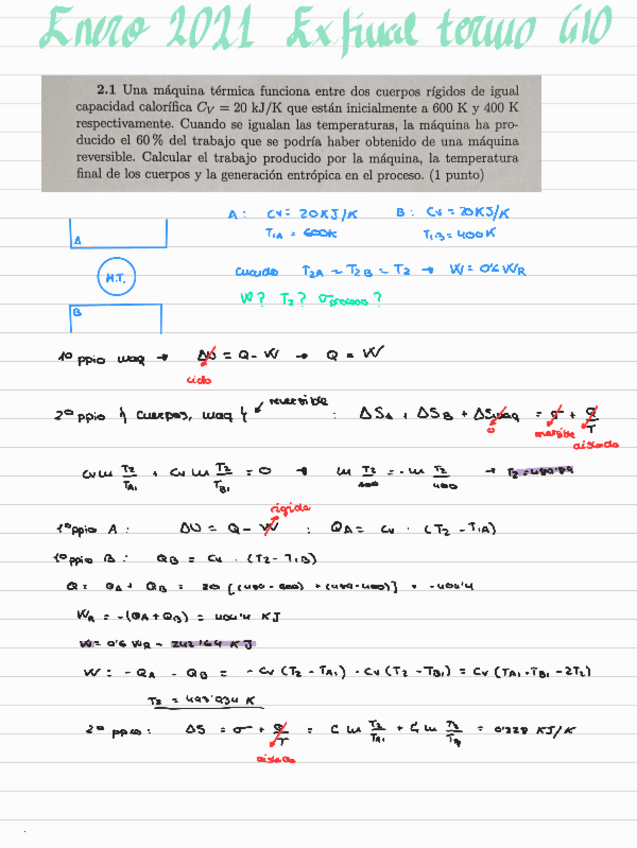 Enero 2021 Ex final termo G10
2.1 Una máquina térmica funciona entre dos cuerpos rígidos de igual
capacidad calorífica CV = 20 kJ/K que están inicialmente a 600 K y 400 K
respectivamente. Cuando se igualan las temperaturas, la máquina ha pro-
ducido el 60 % del trabajo que se podría haber obtenido de una máquina
reversible. Calcular el trabajo producido por la máquina, la temperatura
final de los cuerpos y la generación entrópica en el proceso. (1 punto)
A : CV = 20 KJ/K B : CV = 20 KJ/K
T1A = 600K T1B = 400K
A
M.T.
B
cuando T2A = T2B = T2 → W = 0'6 WR
W? T2? σproceso?
1º ppio maq → ΔU = Q - W → Q = W
ciclo
2º ppio { cuerpos, maq } reversible : ΔSA + ΔSB + ΔSmaq = σ + Q/T
0 aislado
CV ln T2/TA1 + CV ln T2/TB1 = 0 → ln T2/600 = - ln T2/400 → T2 = 489'89
rígido
1º ppio A : ΔU = Q - W : QA = CV · (T2 - T1A)
1º ppio B : QB = CV · (T2 - T1B)
Q = QA + QB = 20 [(489 - 600) + (489 - 400)] = - 404'4
WR = -(QA + QB) = 404'4 KJ
W = 0'6 WR = 242'64 KJ
W = - QA - QB = - CV (T2 - TA1) - CV (T2 - TB1) = CV (TA1 + TB1 - 2T2)
T2 = 493'934 K
2º ppio : ΔS = σ + Q/T = C ln T2/TA1 + C ln T2/TB = 0'328 KJ/K
aislado